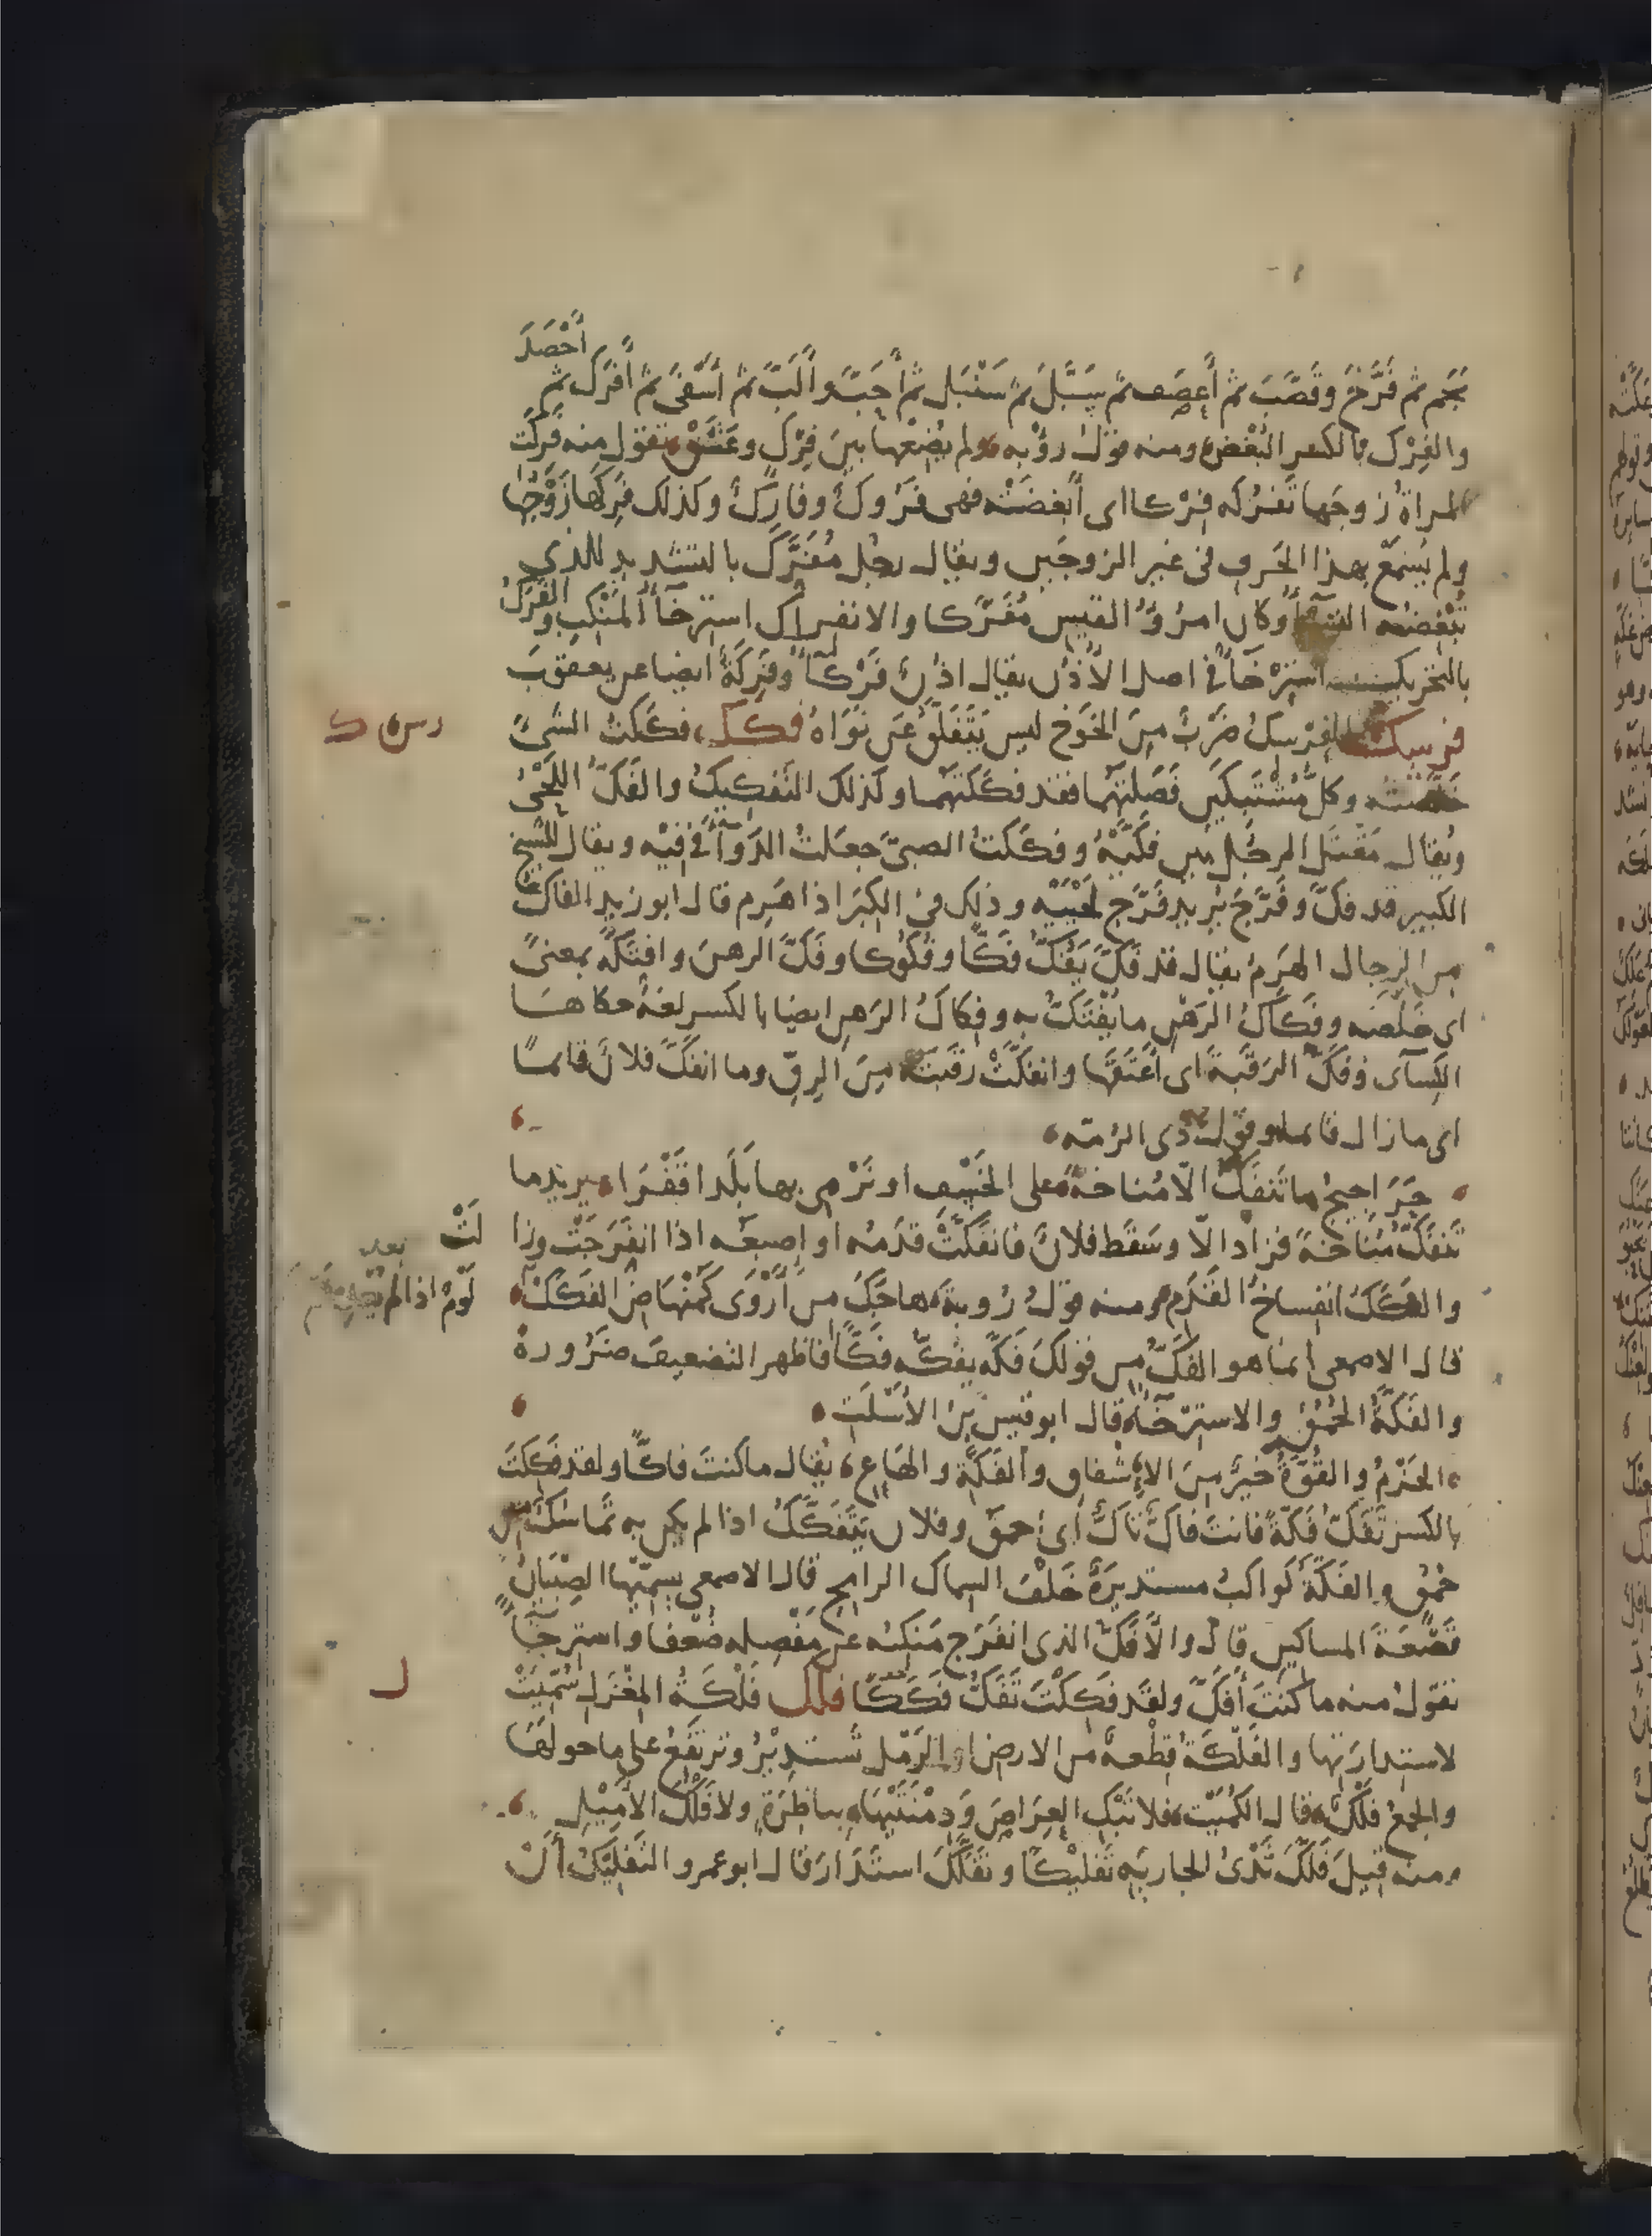 أَحْصَدَ
نجم ثم فَرَّخَ وقَصَّبَ ثم أَعصَف ثم سَبَّلَ ثم سَنْبَل ثم أَحَبَّ وأَلَبَّ ثم أَسْفَى ثم أَفرَك ثم
والفِرْك بالكسر البُغْض ومنه قول رؤبه ولم يُضِعْها بينَ فِرْك وعَشَقْ تقول منه فَرِكَت
المراةُ زوجَها تَفْرَكه فِرْكا اى أَبغضَتْه فهى فَرُوكٌ وفارِكٌ وكذلك فَرِكَها زَوْجُها
ولم يُسْمَع بهذا الحَرف فى غير الزوجَين ويقال رجُل مُفَرَّك بالتشديد للذى
تُبْغِضُه النسآءُ وكان امرُؤُ القيس مُفَرَّكا والانفِراك استرخآءُ المَنْكِب والفَرَكُ
بالتحريك استِرْخآءٌ فى اصل الأُذُن يقال اذُنٌ فَرْكآءُ وفَرِكَةٌ ايضا عن يعقوبَ
فرسك الفِرْسِكُ ضَرْبٌ مِنَ الخَوْخ ليس يَتَفَلَّق عَن نَوَاهُ فكك فكَكتُ الشىءَ
رس ك
خَلَّصْتُه وكل مُشْتَبِكَين فَصَلتَهُما فقد فكَكتَهما وكذلك التَفكِيكُ والفَكّ اللَحْىُ
ويُقال مَقتَل الرجُل بين فَكَّيْهِ وفكَكتُ الصبىَّ جعلتُ الدَوآءَ فى فِيْه ويقال للشيخ
الكبير قد فَكَّ وفَرَّجَ يُريد فَرَّج لَحْيَيْه وذلك فى الكِبَر اذا هَرِم قال ابو زيد الفاكّ
من الرجال الهَرِمُ يقال قد فَكَّ يَفُكُّ فَكّا وفُكُوكا وفَكَّ الرهنَ وافتكّهُ بمعنىً
اى خَلَّصَه وفَكَاكُ الرَهْن ما يُفْتَكُّ به وفِكاكُ الرَهن ايضا بالكسر لغةٌ حكاها
الكِسآئى وفَكَّ الرَقَبةَ اى أَعتَقَها وانفكَّتْ رقَبتُه مِنَ الرِقّ وما انفَكَّ فلانٌ قائما
اى ما زال قائما وقول ذى الرُمّه
حَرَاجِيجُ ما تَنفَكّ الّا مُناخةً على الخَسْف او نَرْمى بها بَلَدا قَفْرَا يريد ما
تَنفَكّ مُنَاخةً فزاد الّا وسَقَط فلانٌ فانفكَّتْ قدَمُه او إصبَعُه اذا انفَرَجَتْ وزا
لَتْ
والفَكَكُ انفِساخُ القَدَم ومنه قول رُوبة هاجَكَ من أَرْوَى كَمُنْهَاضِ الفَكَكْ
لَوْمٌ اذا لم
قال الاصمعى انما هو الفَكّ مِن قولكَ فَكَّه يفُكّه فَكّاً فاظهر التضعيف ضَرُورةً
والفَكّةُ الحُمْقُ والاستِرْخآءُ قال ابو قيس بنُ الأَسْلَت
الحَزْمُ والقُوّةُ خيرٌ مِنَ الإِشفاق والفَكّةِ والهَاعِ يُقال ما كنتَ فاكّاً ولقد فَكِكتَ
بالكسر تَفَكّ فَكّةً فانتَ فاكٌّ تاكٌّ اى احمقَ وفلان يَتَفَكّكُ اذا لم يكن به تَمَاسُكٌ من
حُمْقٍ والفَكّةُ كواكبُ مستديرَةٌ خَلْفَ السِماك الرامِح قال الاصمعى يسمّيها الصِبْيَانُ
قَصْعَةَ المساكين قال والأَفَكّ الذى انفَرَج مَنكِبُه عن مَفْصِله ضُعْفا واسترخآءً
تقول منه ما كنتَ أَفَكَّ ولقد فَكِكْتَ تَفَكّ فَكَكًا فلك فَلْكَةُ المِغْزَل سُمّيَتْ
ل
لاستِدارَتها والفَلْكَةُ قِطْعةٌ من الارض او الرَمْل تَستدِيْرُ وتَرتَفِعُ على ما حولَها
والجمعُ فَلْكٌ قال الكُمَيْت فلا تَبْكِ العِرَاصَ ودِمْنَتَيْهَا بناظِرَةٍ ولا فَلْكَ الأَمِيْل
ومنه قيلَ فَلَّكَ ثَدْىُ الجاريَه تَفلِيكًا وتَفَلَّكَ استَدَارَ قال ابو عمرو التَفلِيْكُ أَنْ